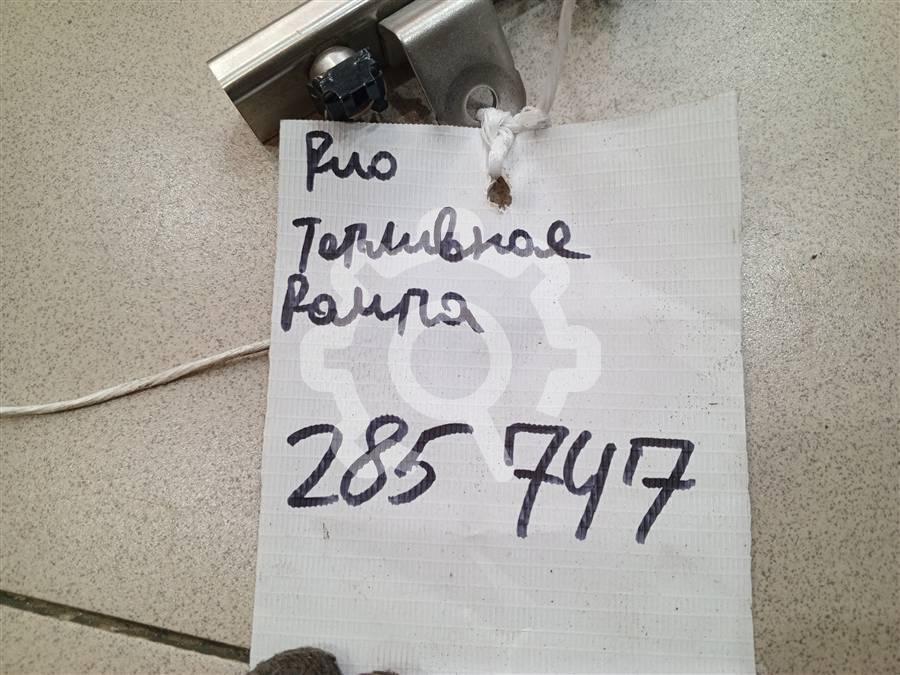 Рио
Топливная
Рампа
285 747